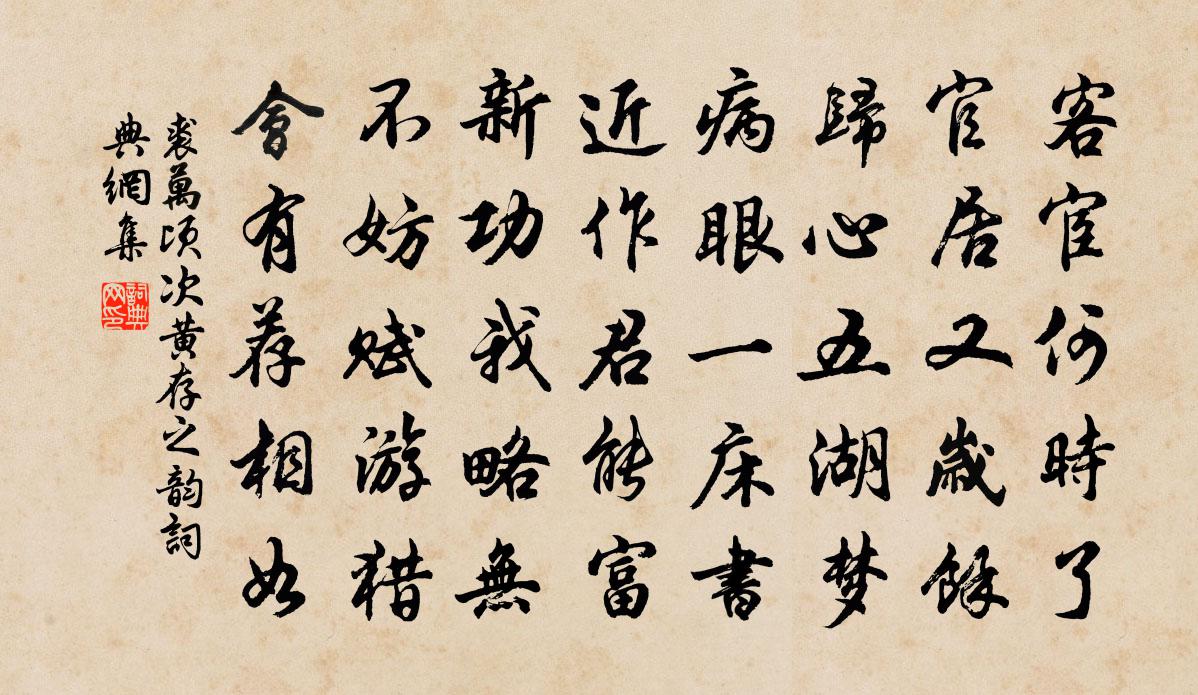 客宦何時了
官居又歲餘
歸心五湖梦
病眼一床書
近作君能富
新功我略無
不妨赋游猎
會有荐相如
裘萬頃次黄存之韵詞
典網集
詞典網印